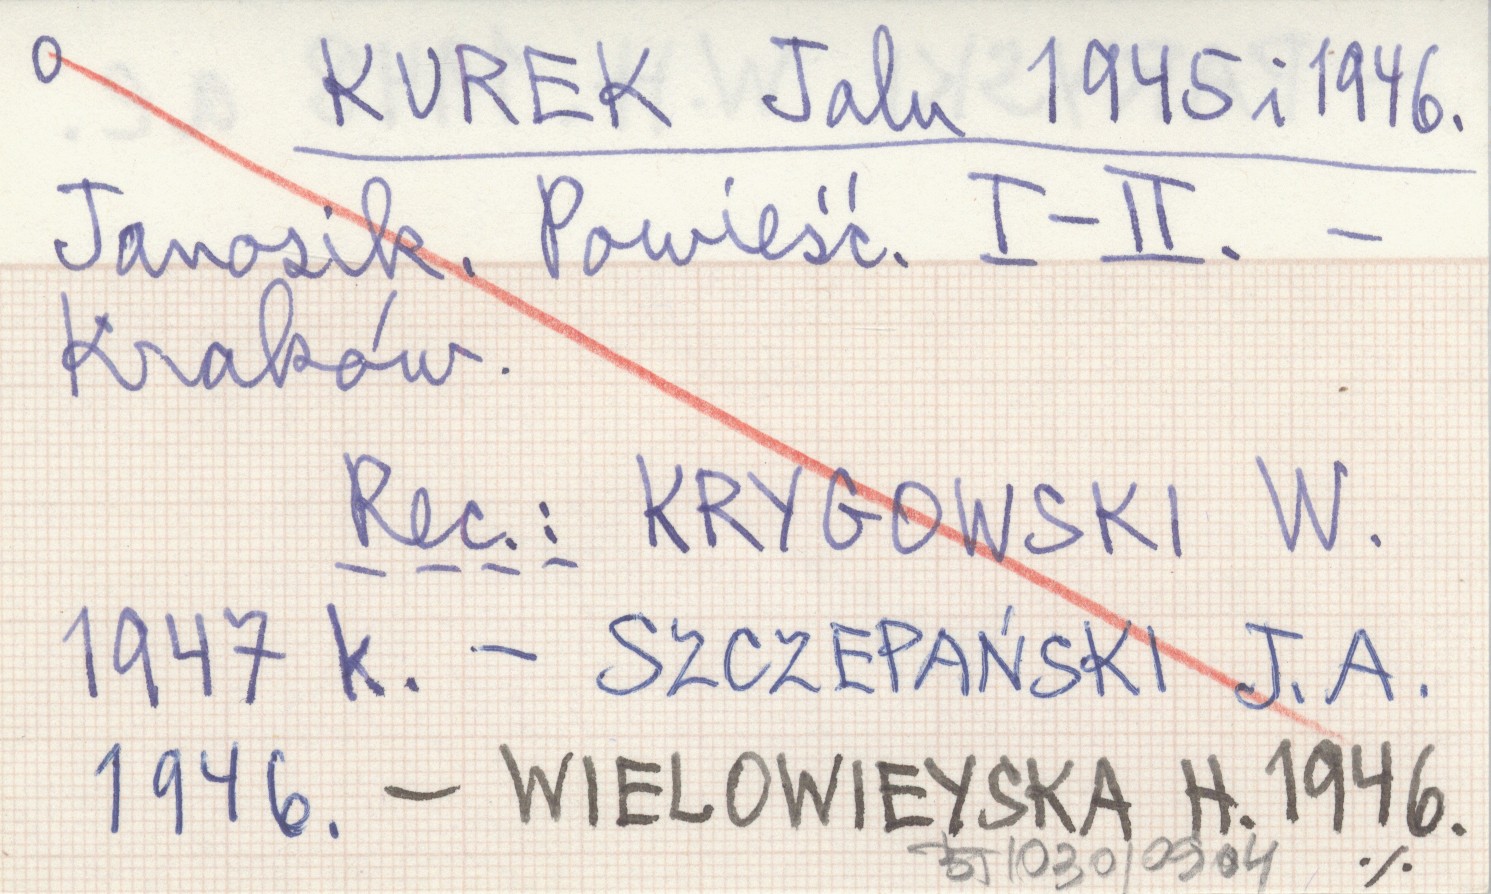 O KUREK Jalu 1945 i 1946.
Janosik. Powieść. I-II. –
Kraków.
Rec.: KRYGOWSKI W.
1947 k. – SZCZEPAŃSKI J.A.
1946. – WIELOWIEYSKA H. 1946.
./.